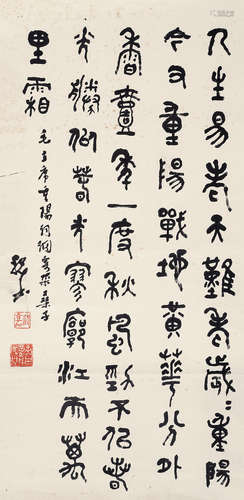 人生易老天難老歲〻重陽
今又重陽戰地黃華分外
香壹年一度秋風勁不似春
光勝似春光寥廓江天萬
里霜
毛主席重陽詞調寄采桑子